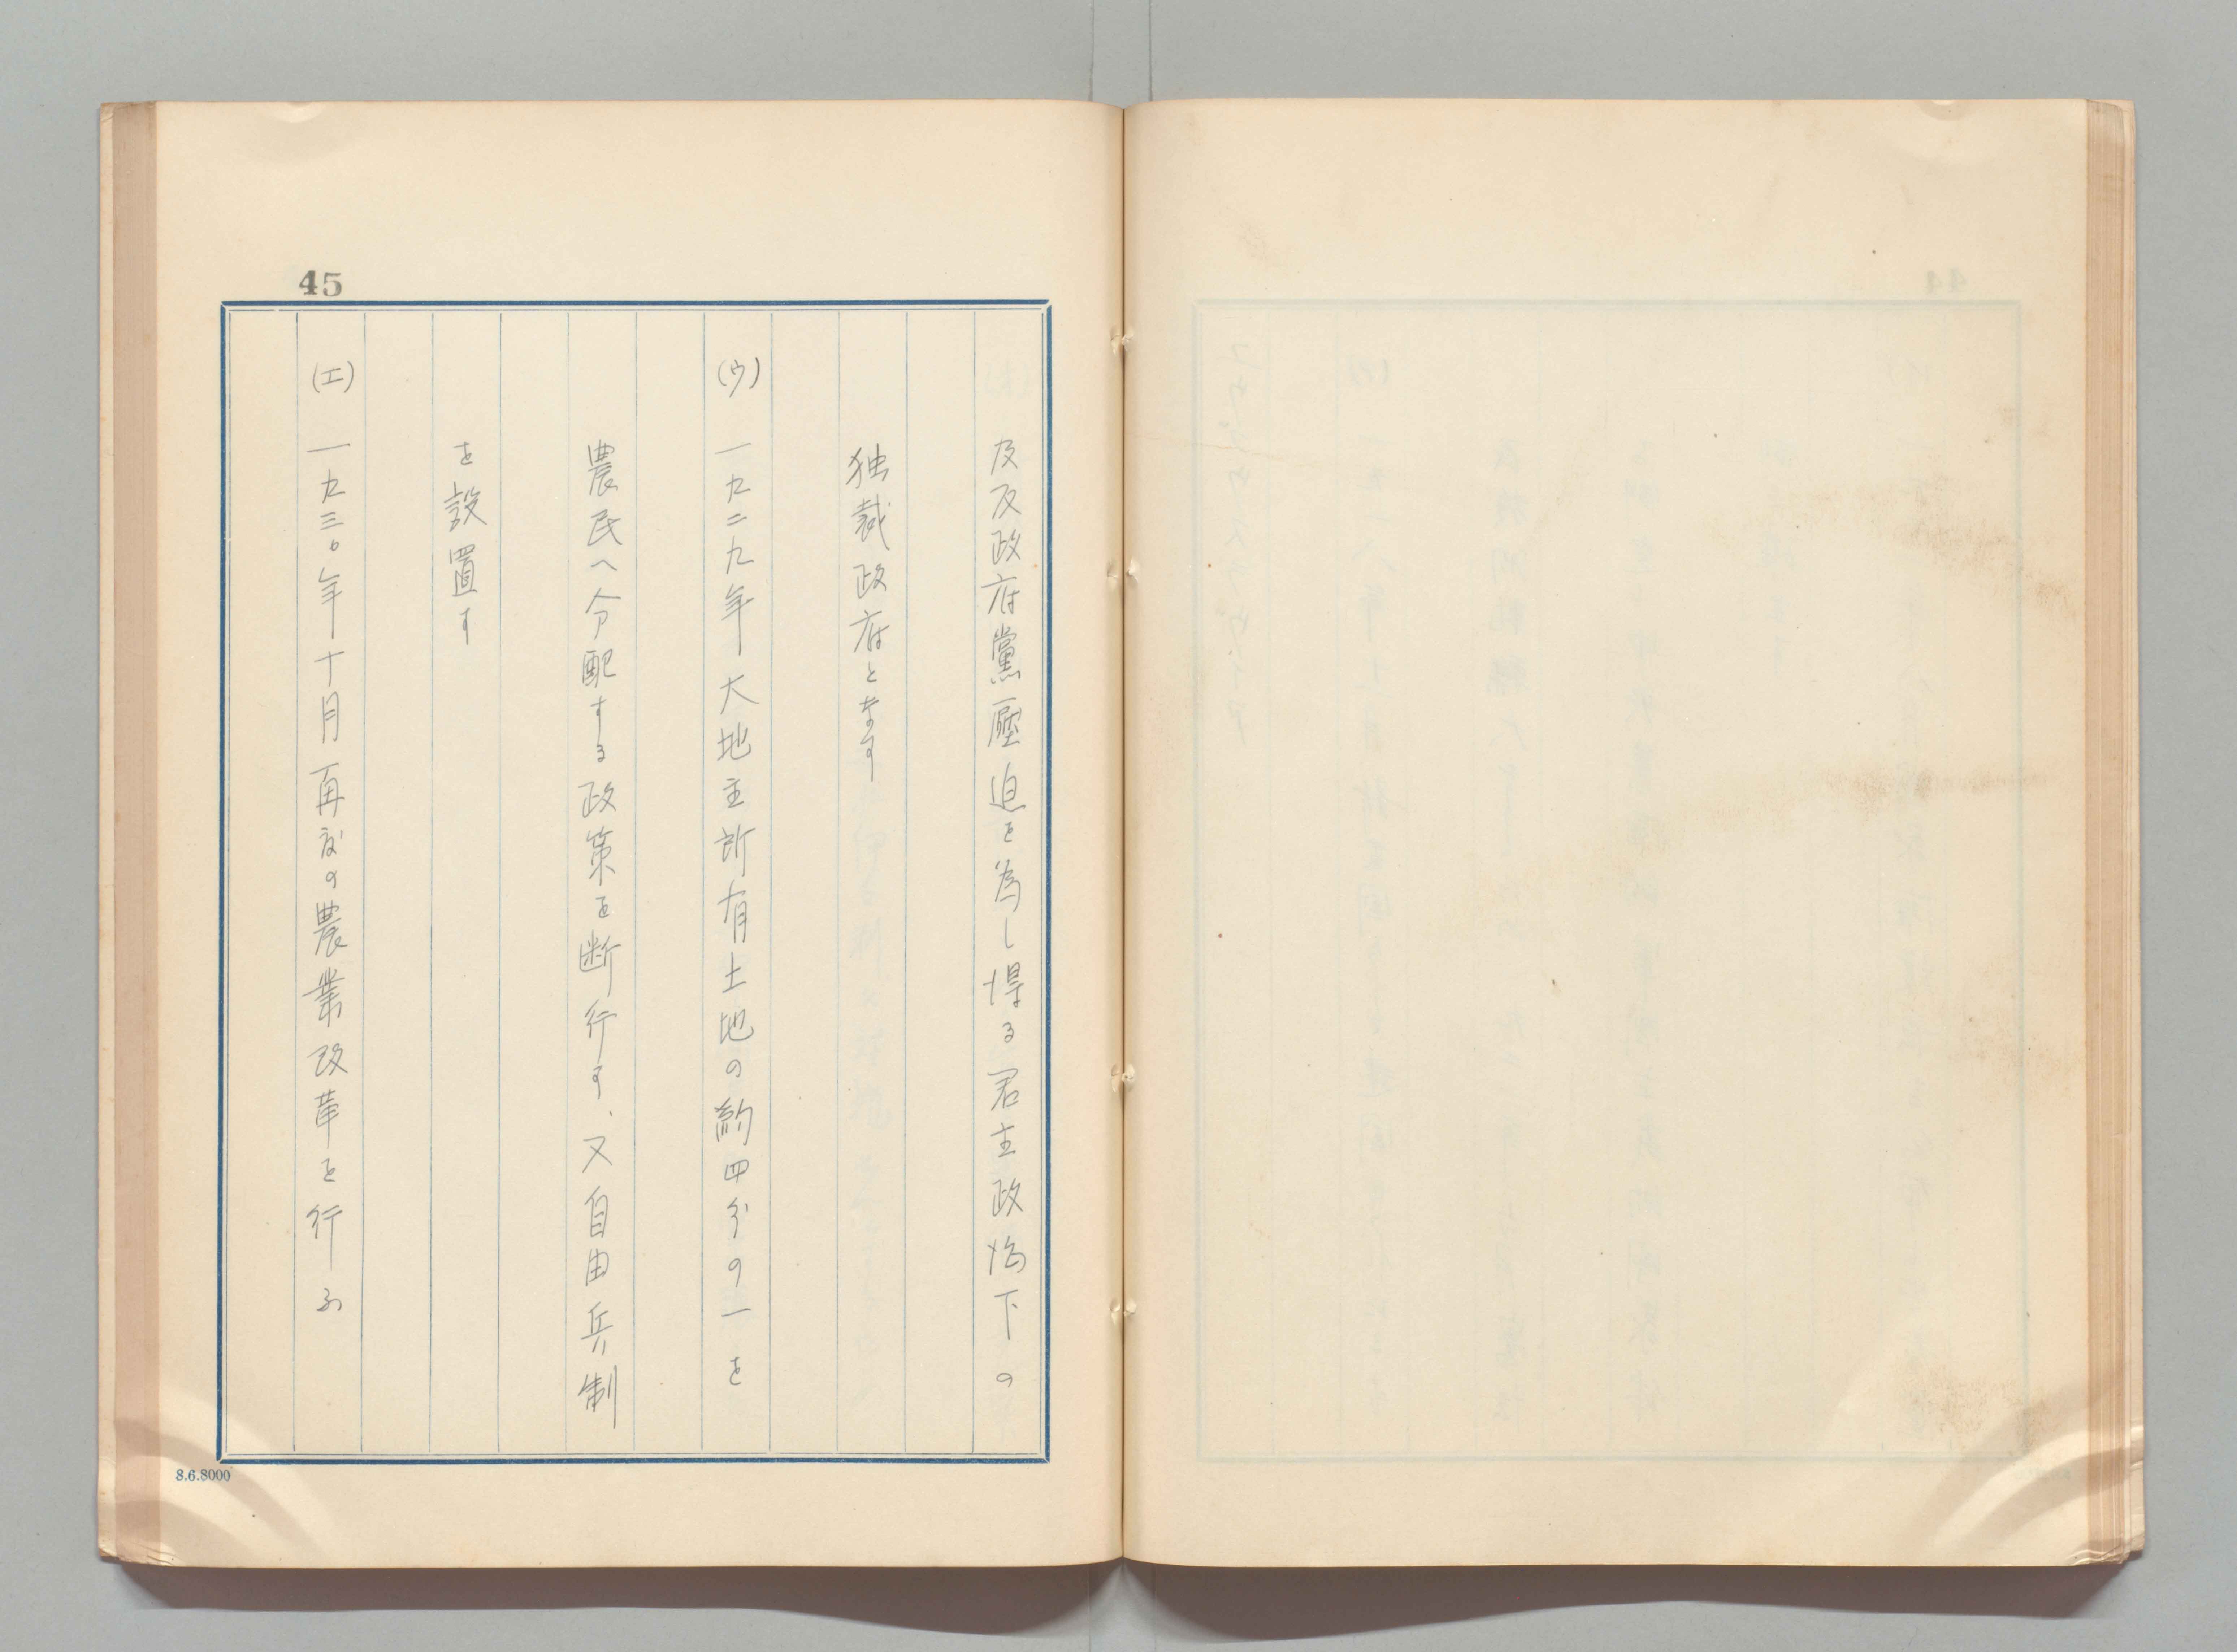 45
及反政府黨壓迫を為し得る君主政治下の
独裁政府となす
(ウ) 一九二九年大地主所有土地の約四分の一を
農民へ分配する政策を断行す、又自由兵制
を設置す
(エ) 一九三〇年十月再度の農業改革を行ふ
8.6.8000